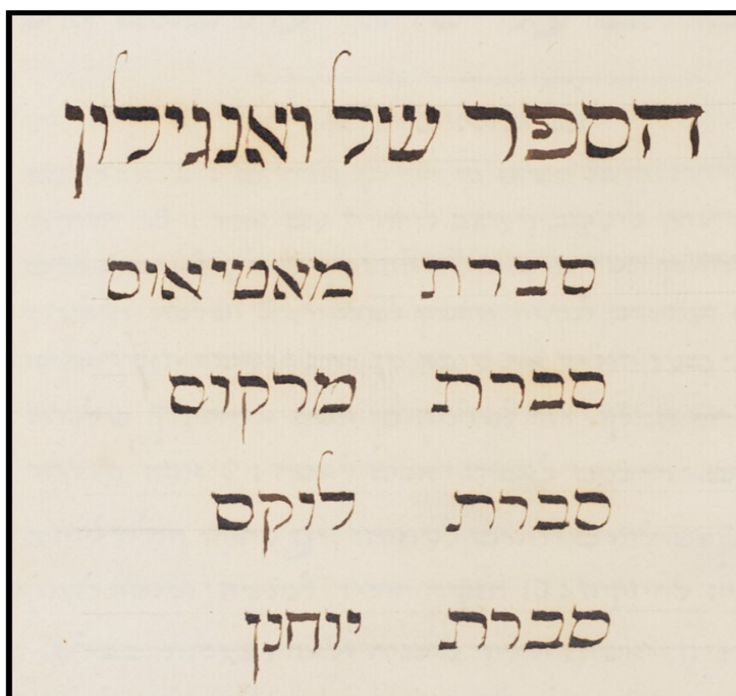 הספר של ואנגילון
סברת מאטיאוס
סברת מרקוס
סברת לוקס
סברת יוחנן